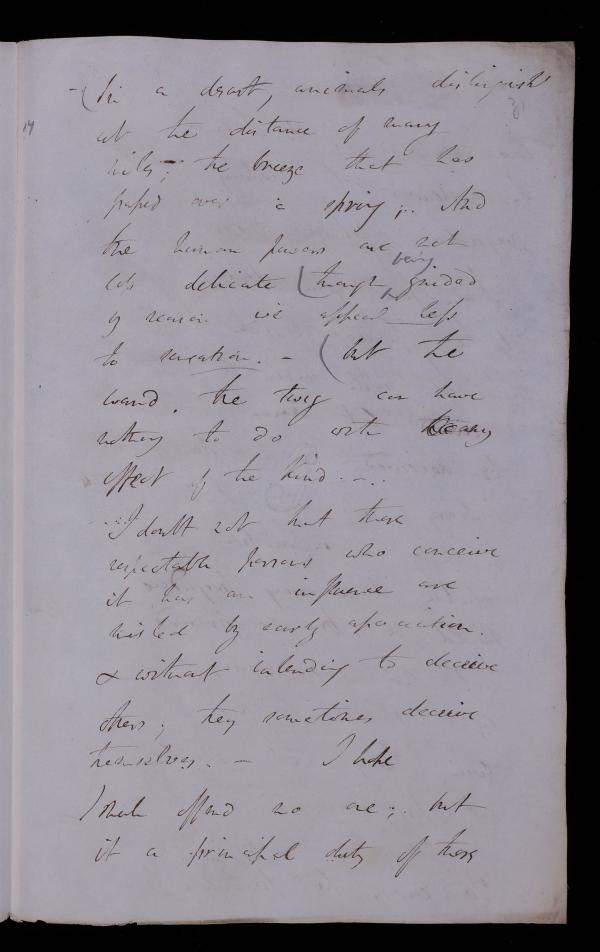 - (In a desart, animals distinguish
at the distance of many
miles; the breeze that has
passed over a spring;. And
the human powers are not
less delicate (though being guided
by reason we appeal less
to sensation. - (but the
wand, the twig can have
nothing to do with any
effect of the kind. - .
I doubt not but those
respectable persons who conceive
it has an influence are
misled by early association.
& without intending to deceive
others; they sometimes deceive
themselves. - I hope
I shall offend no one;. but
it a principal duty of those